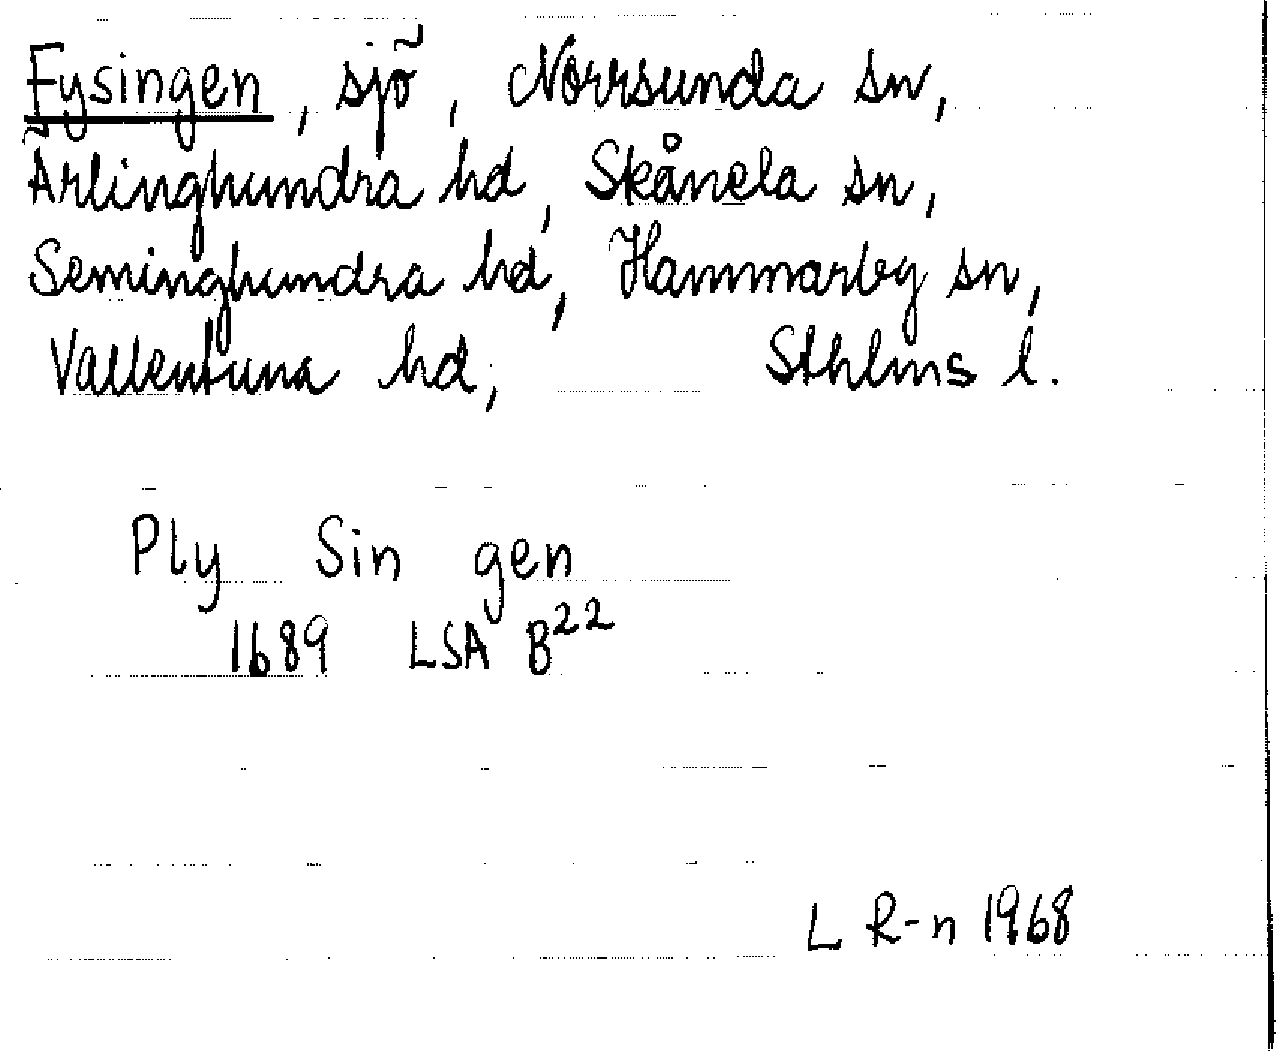 Fysingen, sjö, Norrsunda sn,
Ärlinghundra hd, Skånela sn,
Seminghundra hd, Hammarby sn,
Vallentuna hd, Sthlms l.
Ply Sin gen
1689 LSA B²²
L R-n 1968